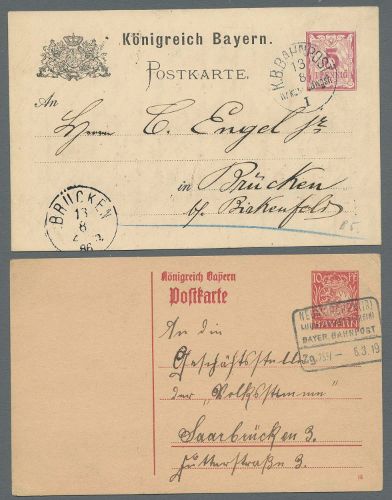 Königreich Bayern.
POSTKARTE.
K.B. BAHNPOST
13
8
I
5
PFENNIG
An
C. Engel jr
in Brücken
b/ Birkenfeld
85.
BRÜCKEN
13
8
86
Königreich Bayern
Postkarte
10 PF
BAYERN
BAYER. BAHNPOST
Zg. 6.3.19
An die
Geschäftsstelle
der „Volksstimme"
Saarbrücken 3.
Futterstraße 3.